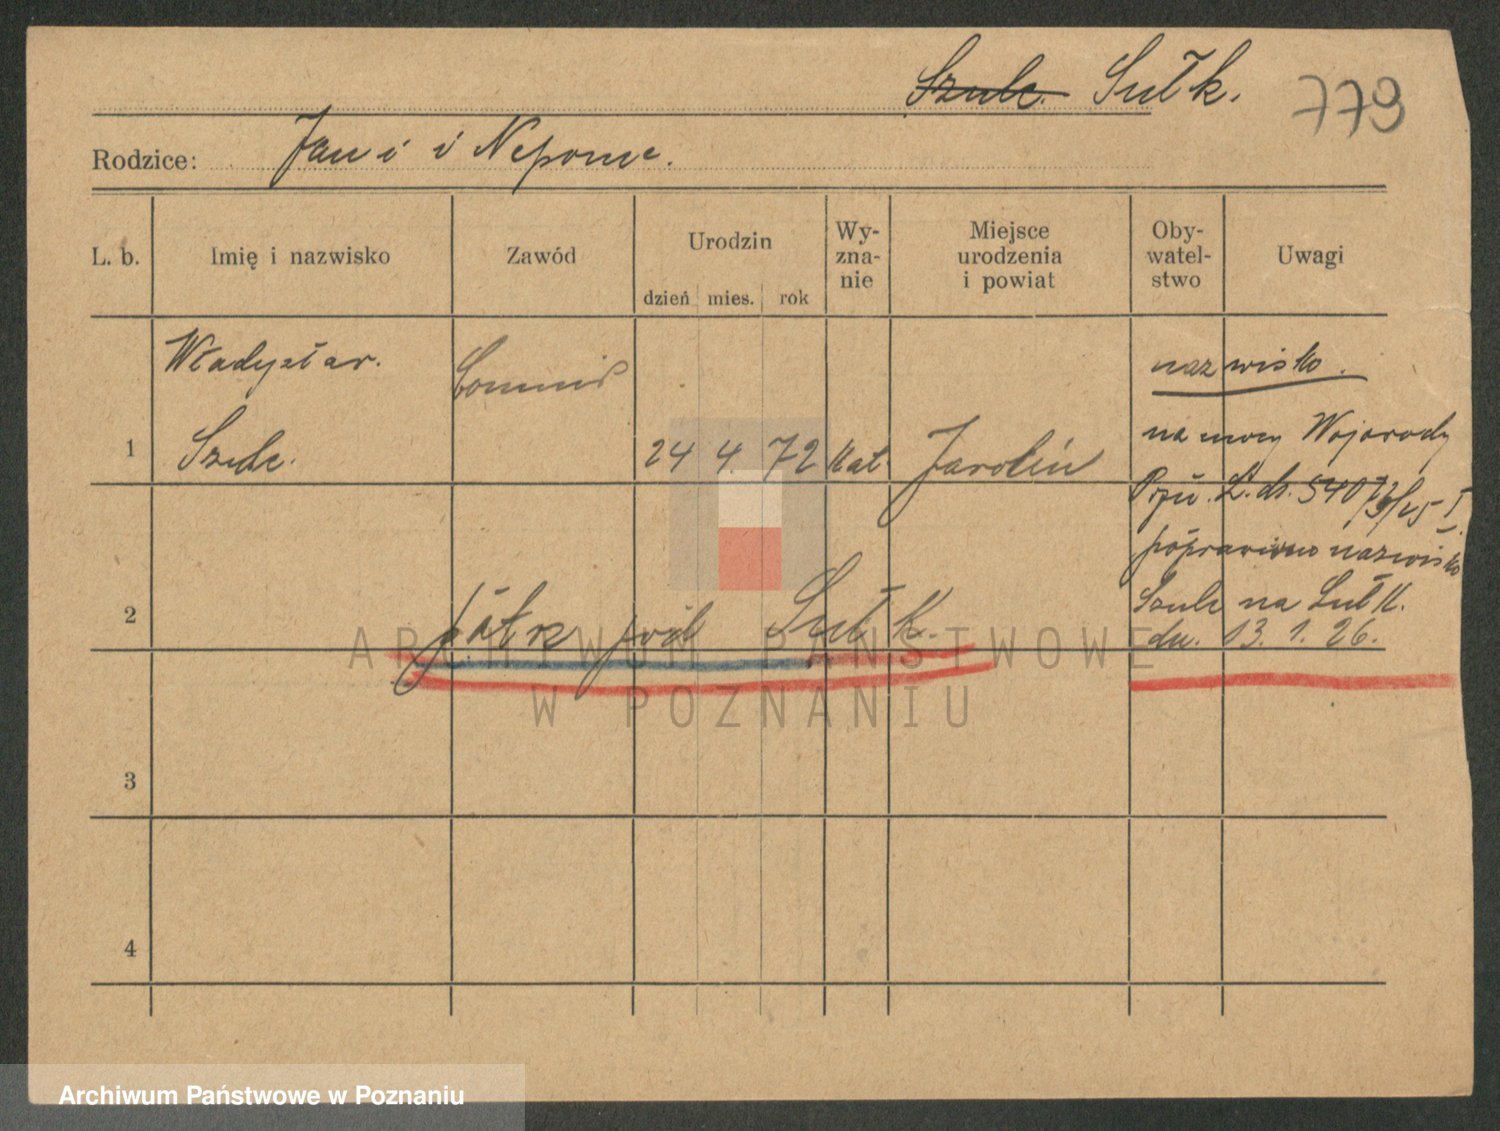 Szulc. Sułk.
779
Rodzice: Jan i i Nepomc.
L. b. Imię i nazwisko Zawód Urodzin dzień mies. rok Wy-zna-nie Miejsce urodzenia i powiat Oby-watel-stwo Uwagi
Władysław.
1 Szulc. 24 4. 72 kat. Jarocin
nazwisko.
na mocy Wojewody
L. dz.
poprawiono nazwisko
Szulc na Sułk.
dn. 13. 1. 26.
2 patrz pod Sułk.
3
4
ARCHIWUM PAŃSTWOWE
W POZNANIU
Archiwum Państwowe w Poznaniu